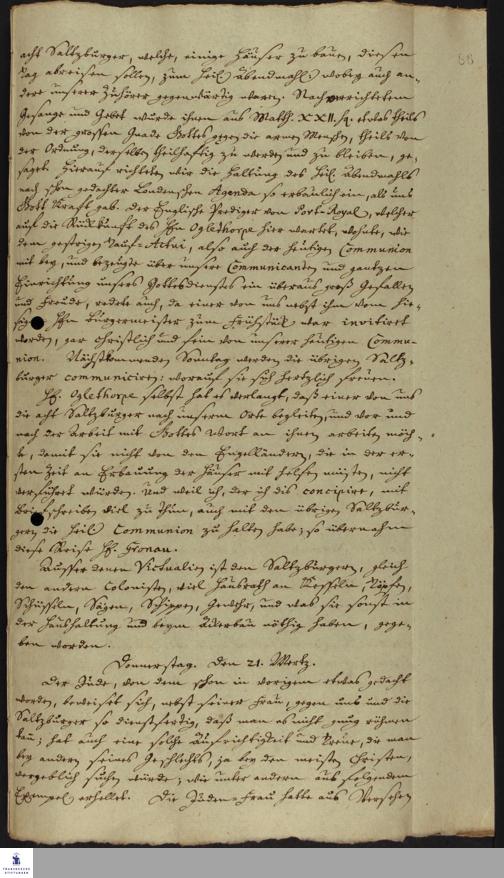 acht Saltzburger, welche, einige Häuser zu bauen, diesen
Tag abreisen sollen, zum Heil. Abendmahl: wobey auch an-
dere unserer Zuhörer gegenwärtig waren. Nach verrichtetem
Gesange und Gebet wurde ihnen aus Matth. XXII, etwas theils
von der grossen Gnade Gottes gegen die armen Menschen, theils von
der Ordnung, derselben theilhaftig zu werden und zu bleiben, ge-
saget. Hierauf richteten wir die Haltung des Heil. Abendmahls
nach schon gedachter Londenschen Agenda so erbaulich ein, als uns
Gott Kraft gab. Der Englische Prediger von Port-Royal, welcher
auf die Rückkunft des Hn. Oglethorpe hier wartet, wohnte, wie
dem gestrigen Tauf-Actui, also auch der heutigen Communion
mit bey, und bezeugte über unsere Communicanten und gantzen
Einrichtung unsers Gottesdienstes ein überaus groß Gefallen
und Freude, redete auch, da einer von uns nebst ihm vom hie-
sigen Hn. Bürgermeister zum Frühstück war invitiret
worden, gar christlich und fein von unserer heutigen Commu-
nion. Nächstkommenden Sonntag werden die übrigen Saltz-
burger communiciren: worauf sie sich hertzlich freuen.
Hr. Oglethorpe selbst hat es verlangt, daß einer von uns
die acht Saltzburger nach unserm Orte begleiten, und vor und
nach der Arbeit mit Gottes Wort an ihnen arbeiten möch-
te, damit sie nicht von den Engelländern, die in der er-
sten Zeit an Erbauung der Häuser mit helfen müssen, nicht
verführet würden. Und weil ich, der ich dis concipire, mit
Briefschreiben viel zu thun, auch mit den übrigen Saltzbur-
gern die Heil. Communion zu halten habe; so übernahm
diese Reise Hr. Gronau.
Ausser denen Victualien ist den Saltzburgern, gleich
den andern Colonisten, viel Hausrath an Kesseln, Töpfen,
Schüsseln, Sägen, Schippen, Gewehr, und was sie sonst in
der Haushaltung und beym Ackerbau nöthig haben, gege-
ben worden.
Donnerstag. Den 21. Mertz.
Der Jude, von dem schon in vorigem etwas gedacht
worden, beweiset sich, nebst seiner Frau, gegen uns und die
Saltzburger so dienstfertig, daß man es nicht gnug rühmen
kan; hat auch eine solche Aufrichtigkeit und Treue, die man
bey andern seines Geschlechts, ja bey den meisten Christen,
vergeblich suchen würde; wie unter andern aus folgendem
Exempel erhellet. Die Juden-Frau hatte aus Versehen
FRANCKESCHE
STIFTUNGEN